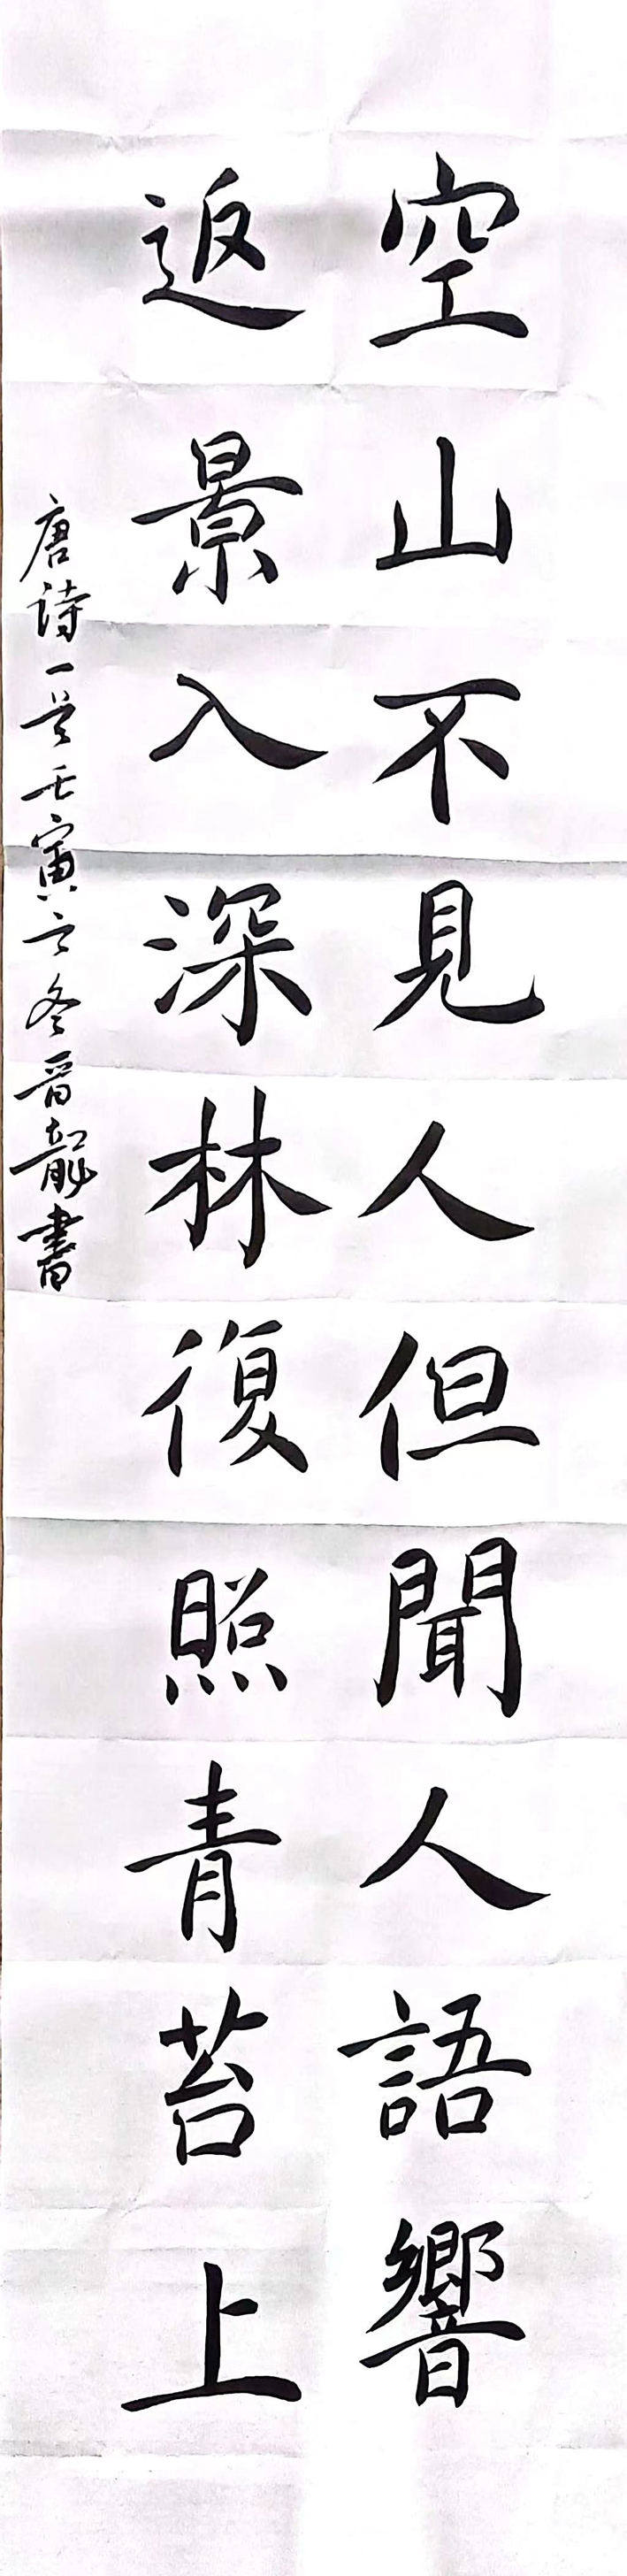 空山不見人但聞人語響
返景入深林復照青苔上
唐詩一首壬寅之冬晋龍書